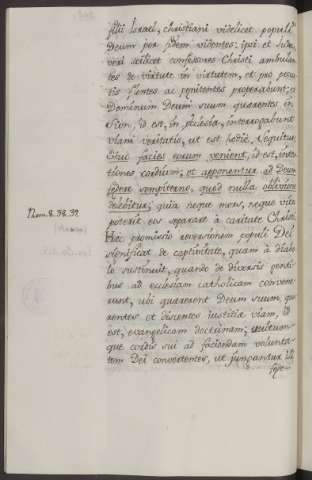 filii Israel, christiani videlicet populi
Deum per fidem videntes: ipsi et Judaei
veri scilicet confessores Christi ambulan
tes de virtute in virtutem, et pro pecca
tis flentes ac penitentes properabunt; et
Dominum Deum suum quaerentes in
Sion, id est, in Ecclesia, interrogabunt
viam veritatis, ut est hodie. Sequitur
Huc facies eorum venient, id est, inten
tiones cordium; et apponentur ad Deum
federe sempiterno, quod nulla oblivione
delebitur; quia neque mors, neque vita
Rom. 8. 38. 39.
poterit eos separare à caritate Christi.
Hec promissio reversionem populi Dei
significat de captivitate, quam à diabo
lo sustinuit, quando de diversis genti
bus ad ecclesiam catholicam convene
runt, ubi quaererent Deum suum que
rentes et discentes justitiae viam, id
est, evangelicam doctrinam; vultum
que cordis sui ad faciendam volunta
tem Dei convertentes, ut jungantur illi